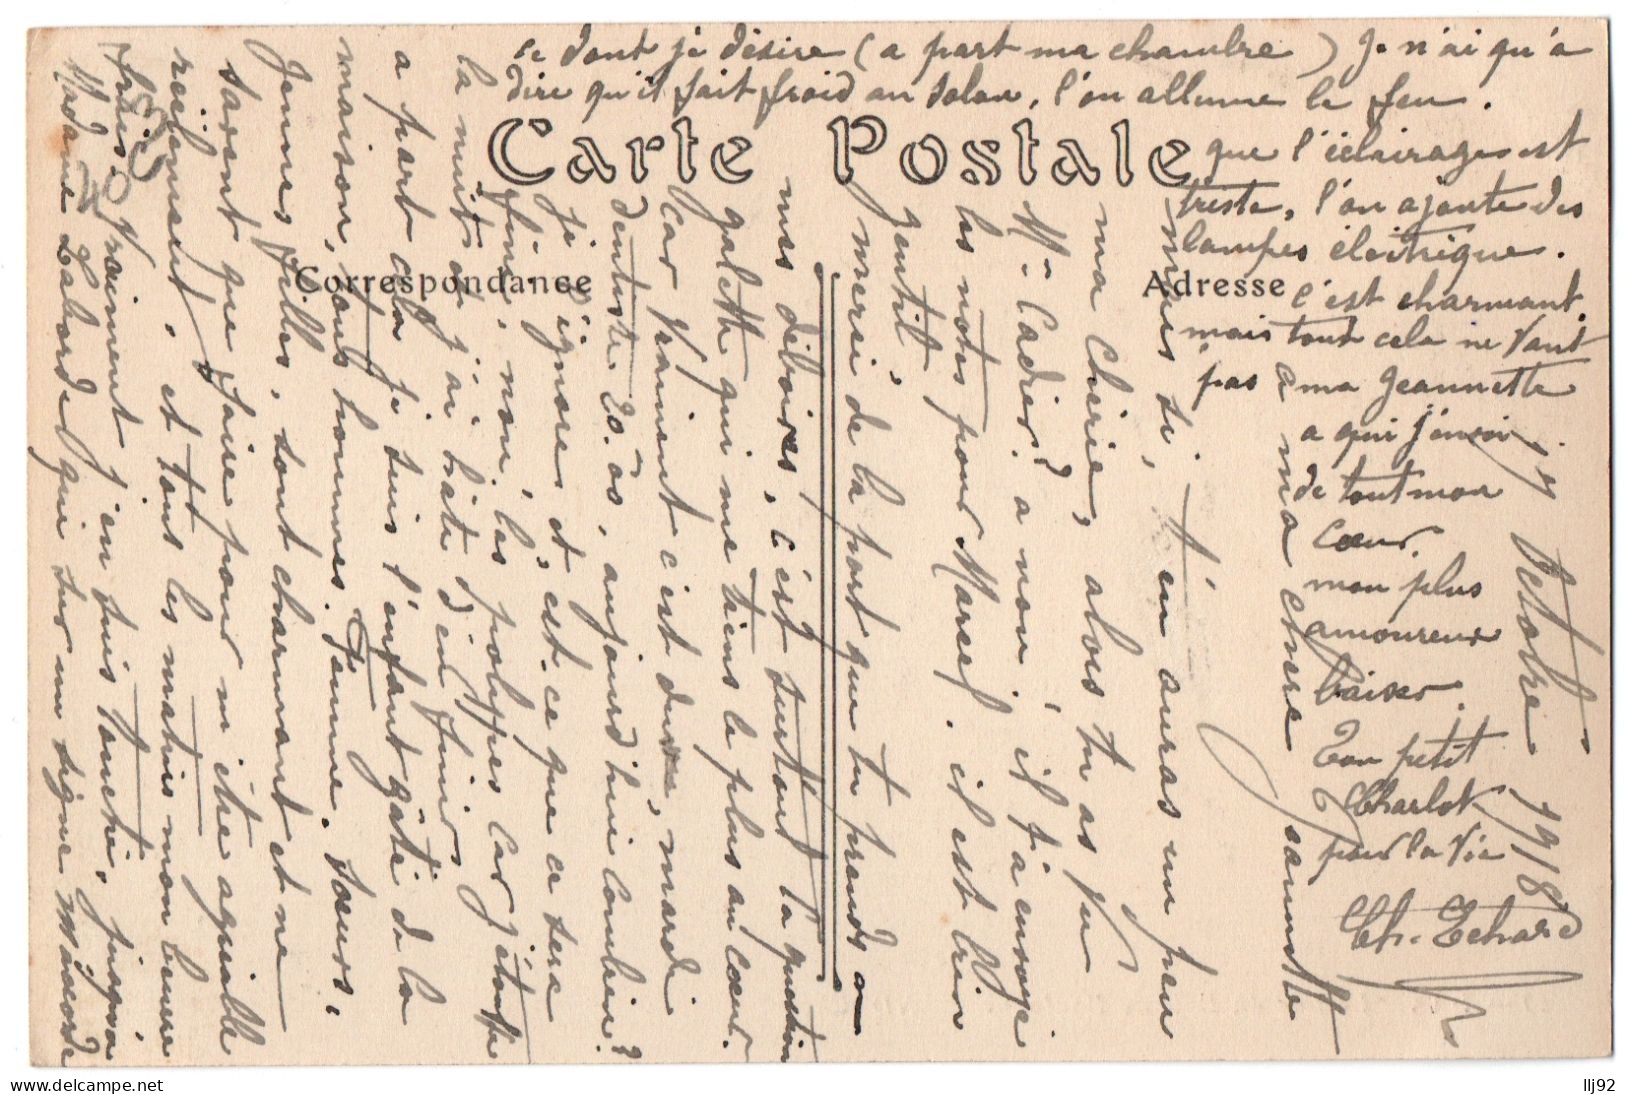 17 Octobre 1918
a ma chere Jeannette
mais si, t'en auras un peu
ma chérie, alors tu as vu
Mr Cadier? a non, il t'a envoyé
les notes pour Marcel. il est bien
gentil,
merci de la part que tu prends a
mes déboires, c'est surtout la question
galette qui me tiens le plus au cœur.
car vraiment c'est dure, mardi
dentiste 20.os, aujourd'hui combien?
je l'ignore et, est-ce que ce sera
fini, non, les polypes car j'étouffe
la nuit et j'ai hâte d'en finir,
a part cela je suis l'enfant gâté de la
maison, tous hommes. Femme. sœurs.
Jeunes filles, sont charmant et ne
savent que faire pour m'être agréable
réellement, et tous les matins mon beurre
frais. Vraiment j'en suis touché, jusqu'a
Madame Laborde qui sur un signe m'accorde
ce dont je désire (a part ma chambre) Je n'ai qu'a
dire qu'il fait froid au salon, l'on allume le feu.
Carte Postale
Correspondance
Adresse
que l'éclairage est
triste, l'on ajoute des
lampes éléctrique.
c'est charmant,
mais tout cela ne vaut
pas ma Jeannette
a qui j'envoi
de tout mon
cœur.
mon plus
amoureux
baiser.
Ton petit
Charlot
pour la vie
Ch. Echard
llj92